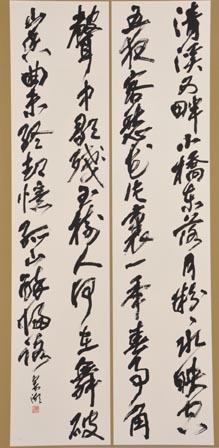 清溪西畔小橋東落月紛々水映空
五夜客愁花片裏一年春事角
聲中歌殘玉樹人何在舞破
山香曲未終却憶孤山醉歸路